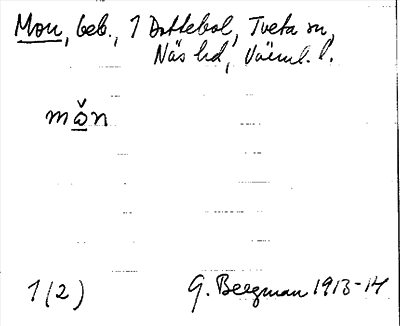 Mon, beb., 1 Dottebol, Tveta sn,
Näs hd, Värml. l.
må̌n
1 (2)
G. Bergman 1913-14